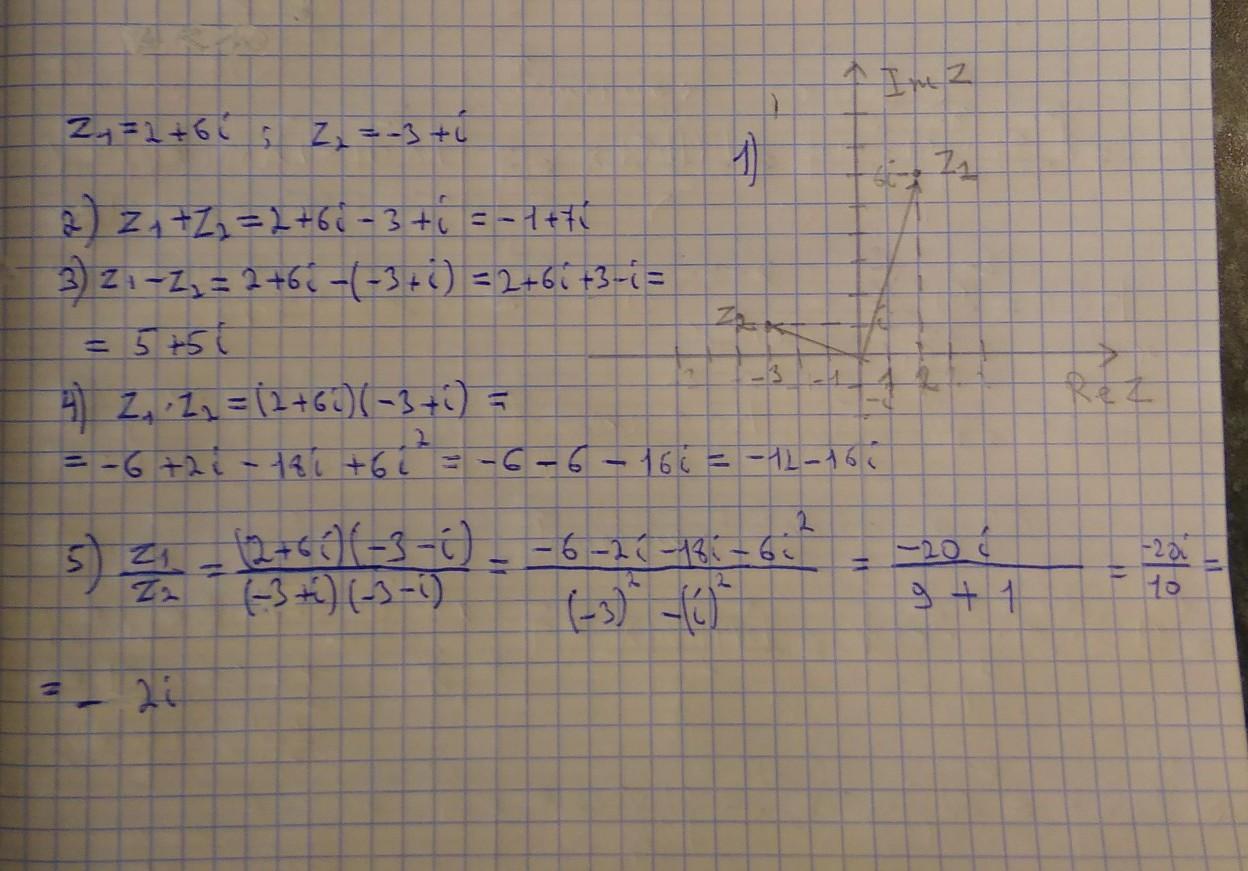 z₁ = 2 + 6i ; z₂ = -3 + i
1)
Im Z
6i
Z1
Z2
i
-3 -1 1 2
-i
Re Z
2) z₁ + z₂ = 2 + 6i - 3 + i = -1 + 7i
3) z₁ - z₂ = 2 + 6i - (-3 + i) = 2 + 6i + 3 - i =
= 5 + 5i
4) z₁ · z₂ = (2 + 6i)(-3 + i) =
= -6 + 2i - 18i + 6i² = -6 - 6 - 16i = -12 - 16i
5) z₁/z₂ = (2+6i)(-3-i)/(-3+i)(-3-i) = -6-2i-18i-6i²/(-3)² -(i)² = -20i/9 + 1 = -20i/10 =
= - 2i